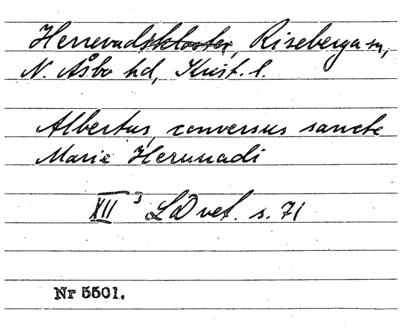 Herrevadskloster, Riseberga sn,
N. Åsbo hd, Krist. l.
Albertus, conversus sancte
Marie Heruuadi
XII 3 LD vet. s. 71
Nr 5501.